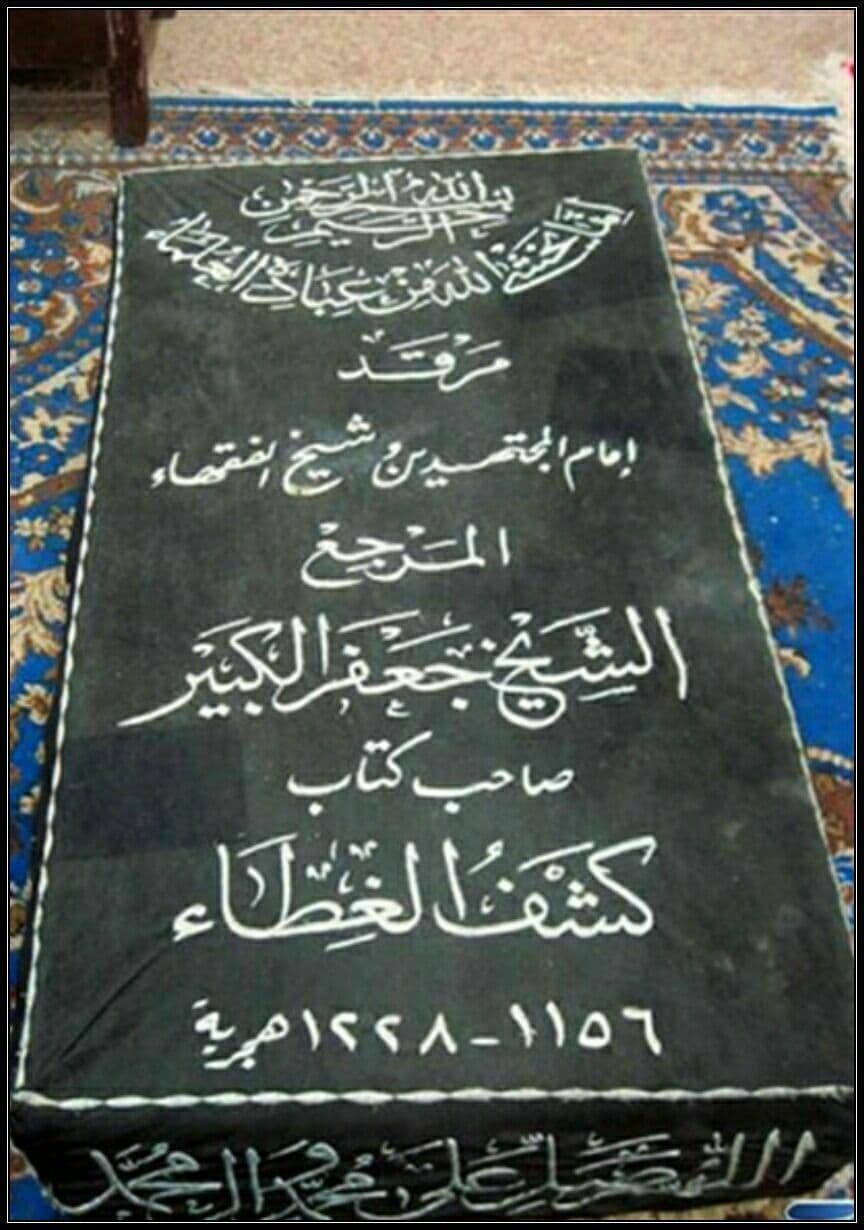 بسم الله الرحمن
الرحيم
إنما يخشى الله من عباده العلماء
مَرقَد
إمام المجتهدين وشيخ الفقهاء
المَرجِع
الشِّيَخ جَعفَر الكبَير
صاحب كتاب
كشَفُ الغِطاَء
١١٥٦ - ١٢٢٨ هجرية
اللهم صَلِّ عَلىَ محُمَّد وَال محُمَّد